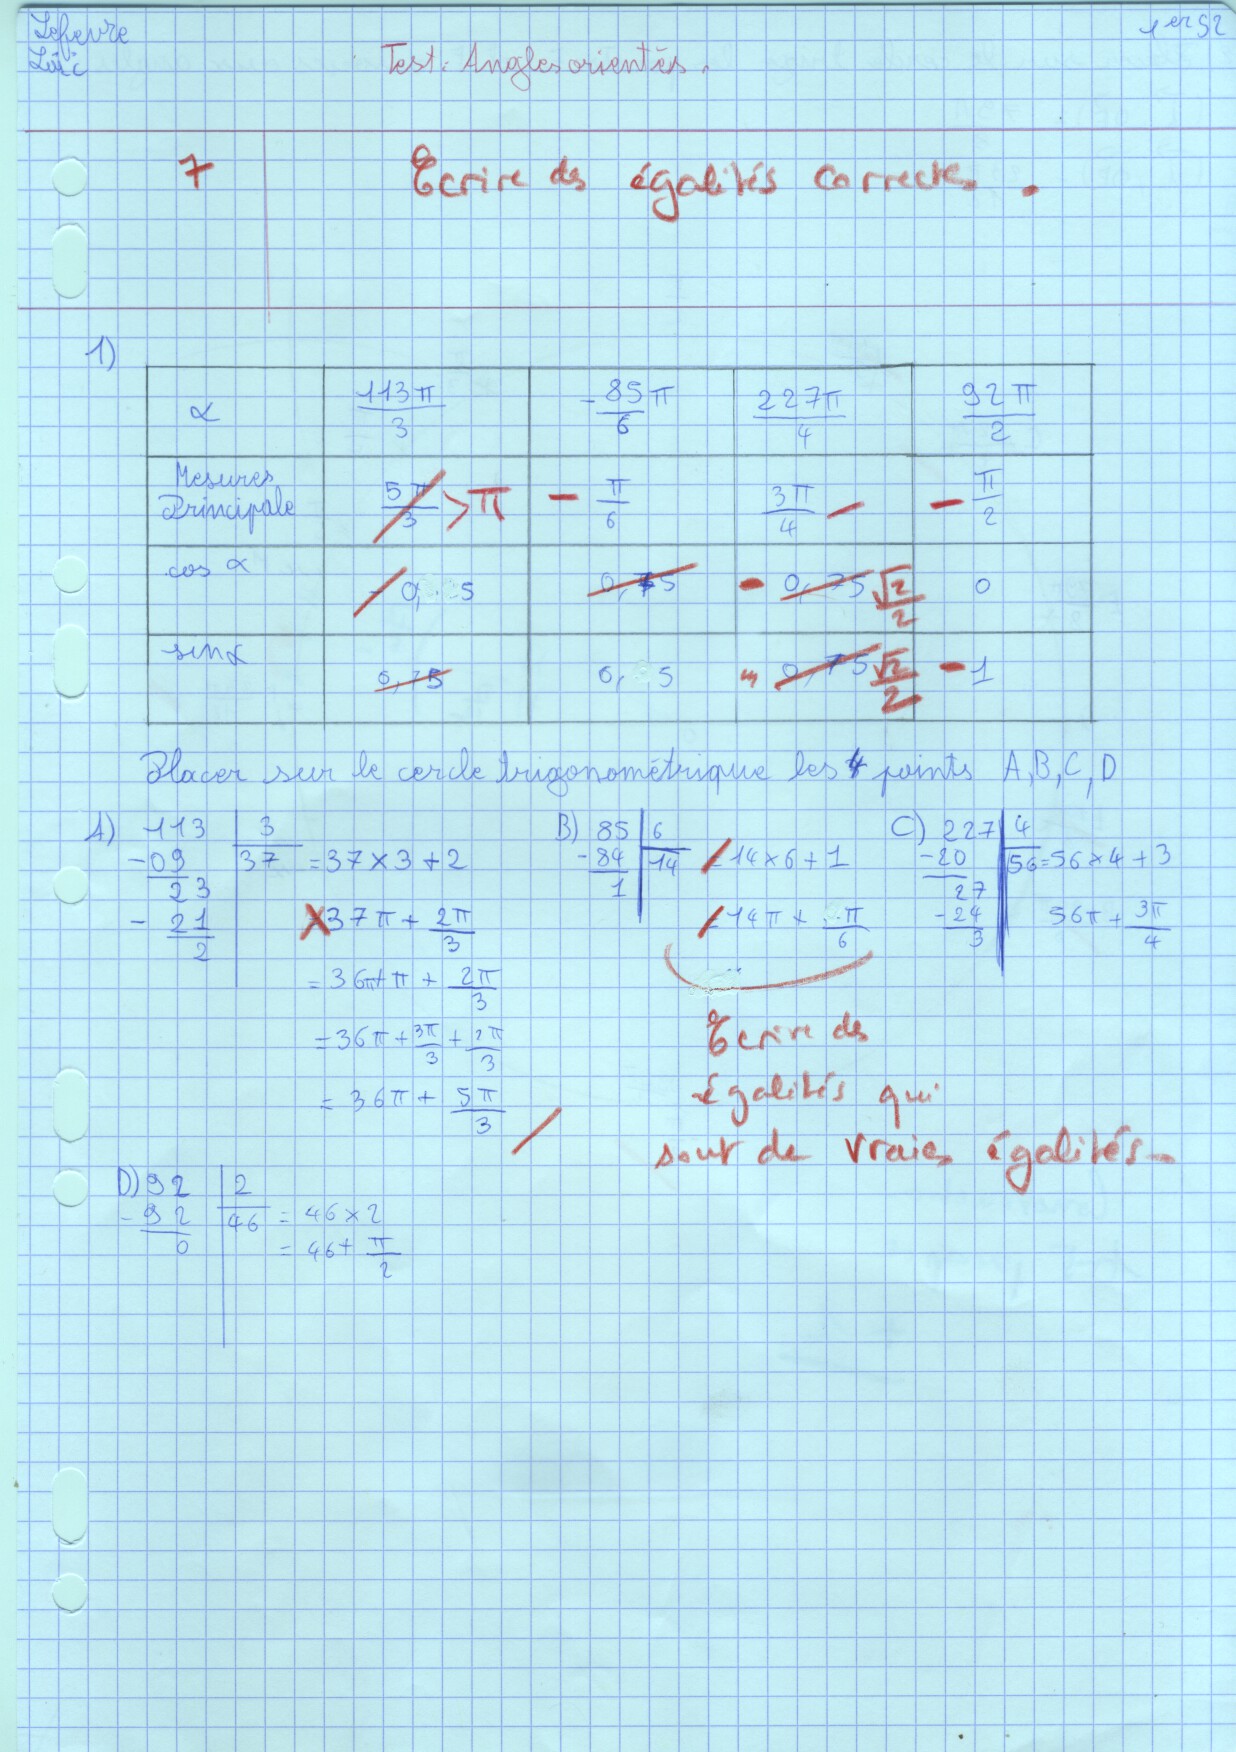 Lefevre
Loïc
1er S2
Test: Angles orientés.
7
Ecrire des égalités correctes.
1)
α 113π/3 -85/6 π 227π/4 92π/2
Mesures Principale 5π/3 >π - π/6 3π/4 - - π/2
cos α 0, 5 0,75 - 0,75 √2/2 0
sin α 0,75 0, 5 0,75 √2/2 - 1
Placer sur le cercle trigonométrique les 4 points A,B,C,D
A) 113 | 3
-09 | 37 = 37×3+2
23
- 21
2
X 37π + 2π/3
= 36π+π + 2π/3
= 36π + 3π/3 + 2π/3
= 36π + 5π/3
B) 85 | 6
- 84 | 14 = 14×6+1
1
= 14π + π/6
C) 227 | 4
-20 | 56 = 56×4+3
27
-24
3
56π + 3π/4
Ecrire des
égalités qui
sont de vraies égalités.
D) 92 | 2
- 92 | 46 = 46×2
0 = 46+ π/2